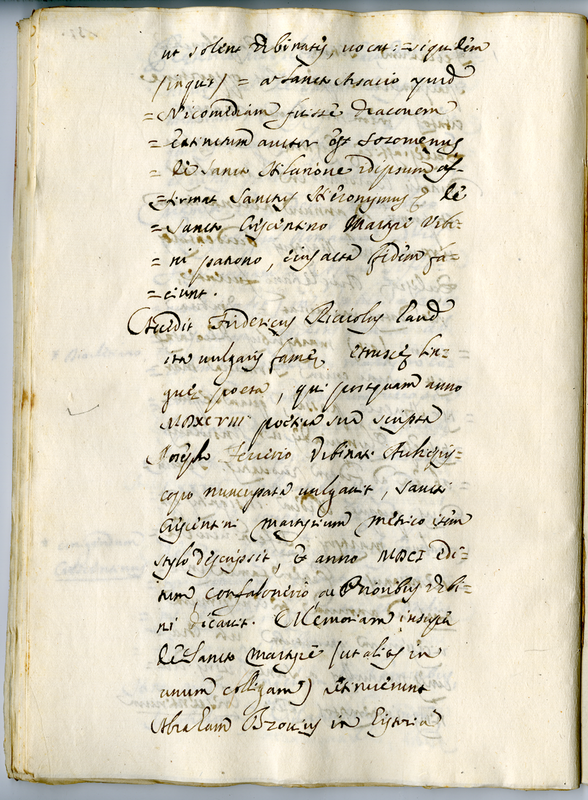 ut solent Urbinates, vocat: = siquidem
(inquit) = a Sancto Arsacio quid
= Nicomediam fuisse draconem
= extinctum auctor est Sozomenus
= de Sancto Hilarione idipsum af=
= firmat Sanctus Hieronymus, de
= Sancto Criscentino Martyre Urbi=
= ni patrono, eius acta fidem fa=
= ciunt.
Accedit Fridericus Ricciolus haud
ita vulgaris famę etruscę lin=
guę poeta, qui postquam anno
MDXCVIII poetica sua scripta
Joseph Ferrerio Urbinat. Archiepis=
copo nuncupata vulgavit, Sancti
Criscentini martyrium metrico item
stylo descripsit, & anno MDCI edi=
tum, Confalonerio, ac Prioribus Urbi=
ni dicavit. Memoriam insuper
de Sancto martyre (ut alios in
unum colligam) retinuerunt
Abraham Brovius in historia